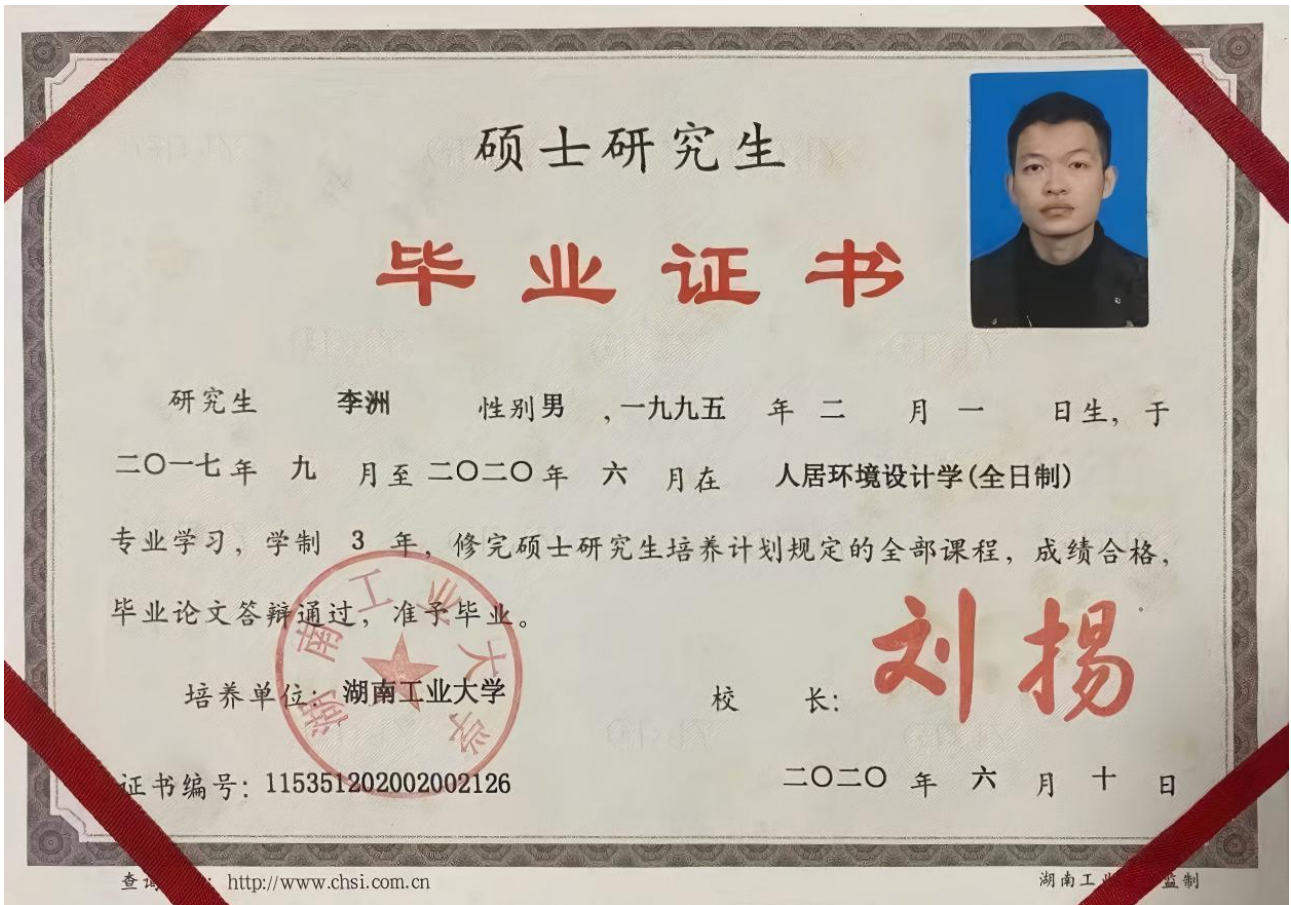 硕士研究生
毕业证书
研究生 李洲 性别 男 ,一九九五 年 二 月 一 日生, 于
二〇一七 年 九 月至 二〇二〇 年 六 月在 人居环境设计学(全日制)
专业学习, 学制 3 年, 修完硕士研究生培养计划规定的全部课程, 成绩合格,
毕业论文答辩通过, 准予毕业。
湖南工业大学
培养单位: 湖南工业大学 校 长: 刘扬
证书编号: 115351202002002126 二〇二〇 年 六 月 十 日
查询 : http://www.chsi.com.cn 湖南工业 监制